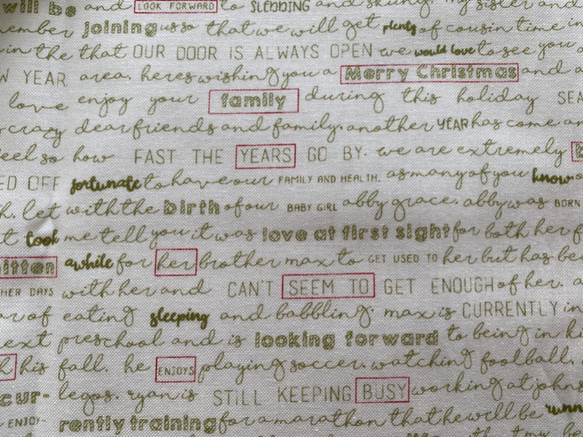 will be and LOOK FORWARD to SLEDDING and skiing. my sister and
ember joining us so that we will get plenty of cousin time in
in the that OUR DOOR IS ALWAYS OPEN we would love to see you
W YEAR area. heres wishing you a Merry Christmas and a
love enjoy your family during this holiday SEA
crazy dear friends and family. another YEAR has come an
feel so how FAST THE YEARS GO BY. we are extremely
ED OFF fortunate to have our FAMILY AND HEALTH. as many of you know
h. let with the birth of our BABY GIRL abby grace. abby was BORN
t took me tell you it was love at first sight for both her f
itten awhile for her brother max to GET USED TO her but has be
HER DAYS with her and CAN'T SEEM TO GET ENOUGH of her. a
ar of eating sleeping and babbling. max is CURRENTLY in
next preschool and is looking forward to being in k
his fall. he ENJOYS playing soccer. watching football.
cur- legos. ryan is STILL KEEPING BUSY working at john
ENJOY- rently training for a marathon that he will be runn